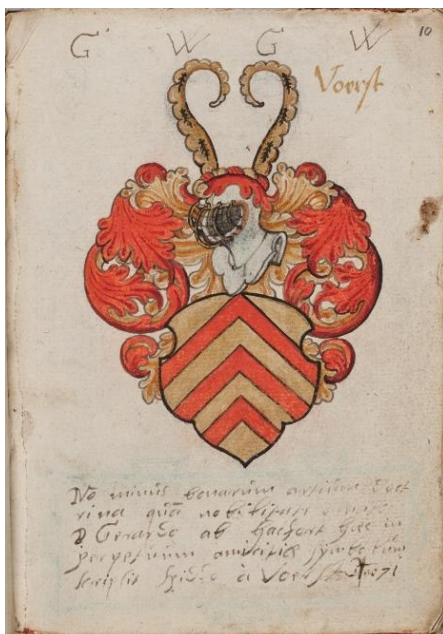 G W G W
10
Voerst
No minus bonarum artium doct
rina quā nobilitate
D Gerardo ab Hacfort hæc in
perpetuum amicitiæ symbolum
scripsit à Voerst 1571